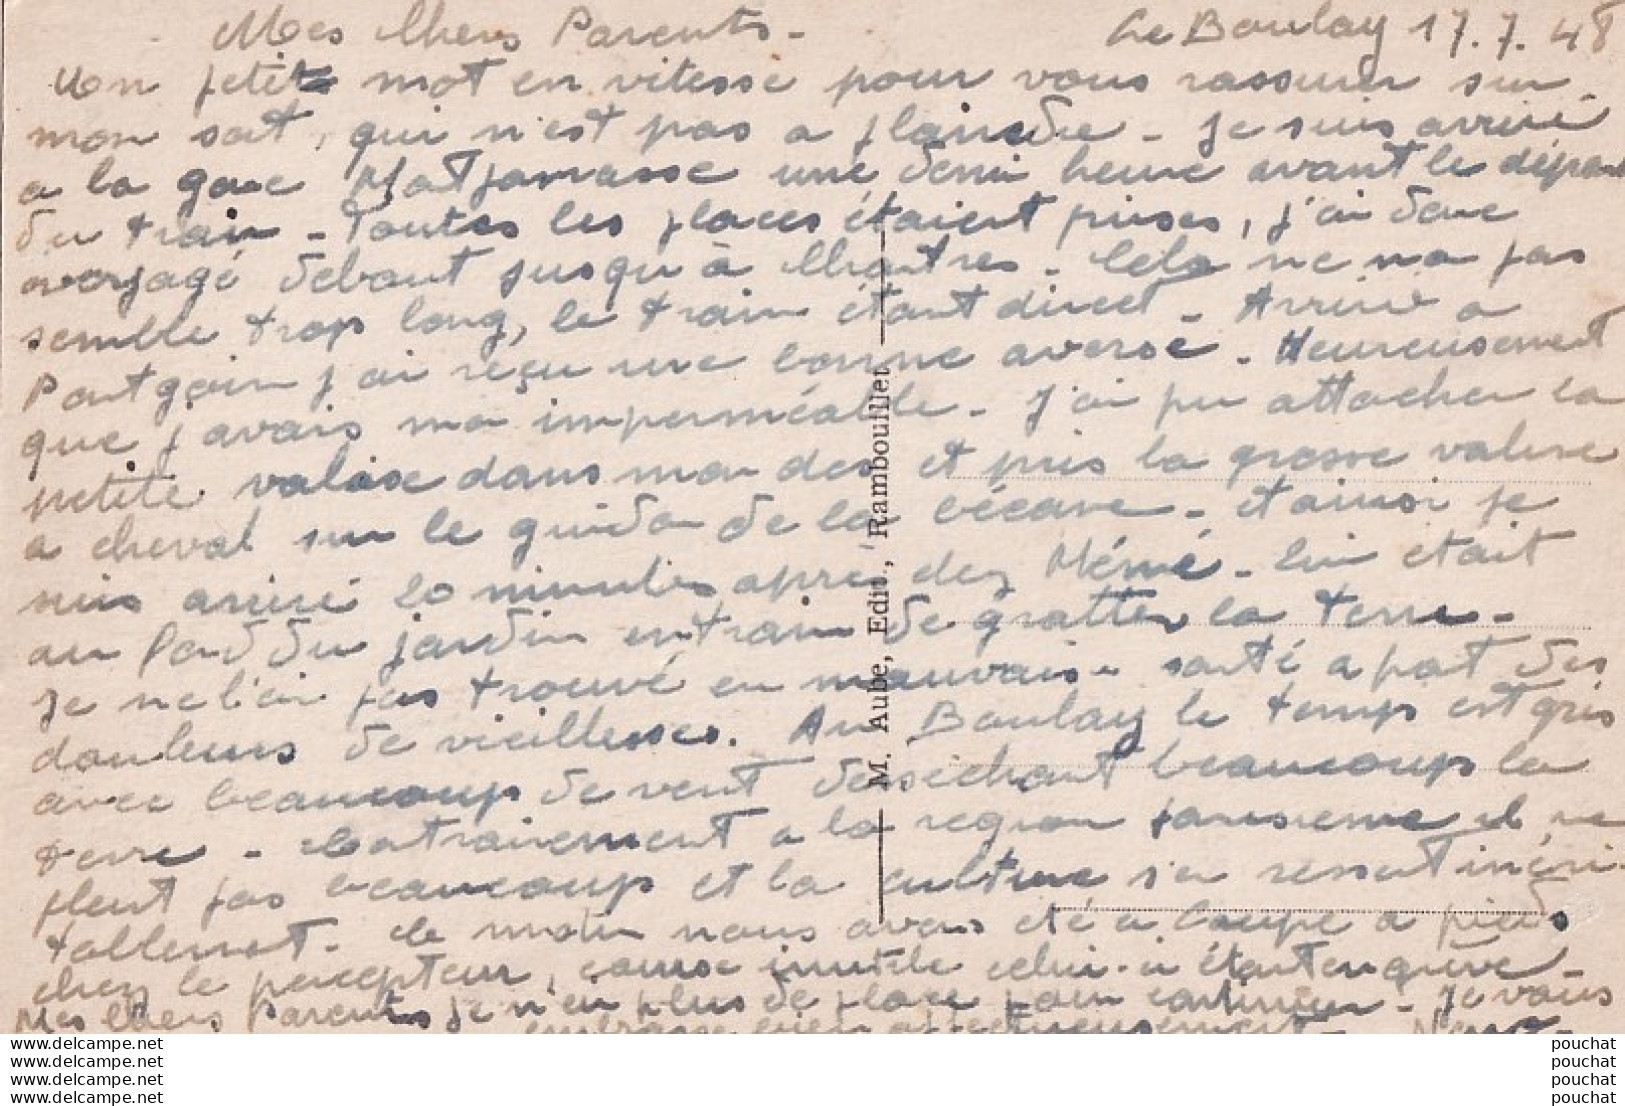 Mes Chers Parents - Le Boulay 17.7.48
Un petit mot en vitesse pour vous rassurer sur
mon sort, qui n'est pas a plaindre - Je suis arrivé
a la gare Montparnasse une demi heure avant le départ
du train - Toutes les places étaient prises, j'ai donc
voyagé debout jusqu'à Chartres - Cela ne m'a pas
semblé trop long, le train étant direct - Arrivé a
Pontgoin j'ai reçu une bonne averse - Heureusement
que j'avais mon imperméable - J'ai pu attacher la
petite valise dans mon dos et pris la grosse valise
a cheval sur le guidon de la bécane - et ainsi je
suis arrivé 20 minutes après chez Mémé - lui était
au fond du jardin entrain de gratter la terre -
Je ne l'ai pas trouvé en mauvaise santé a part des
douleurs de vieillesses. Au Boulay le temps est gris
avec beaucoup de vent desséchant beaucoup la
terre - Contrairement a la région parisienne il ne
pleut pas beaucoup et la culture s'en ressent inévi-
tablement - Ce matin nous avons été a Coupe a pieds
chez le percepteur, course inutile celui-ci étant en grève -
Mes Chers Parents je n'ai plus de place pour continuer - Je vous
embrasse bien affectueusement -
M. Aube, Edit., Rambouillet
www.delcampe.net pouchat
www.delcampe.net pouchat
www.delcampe.net pouchat
www.delcampe.net pouchat